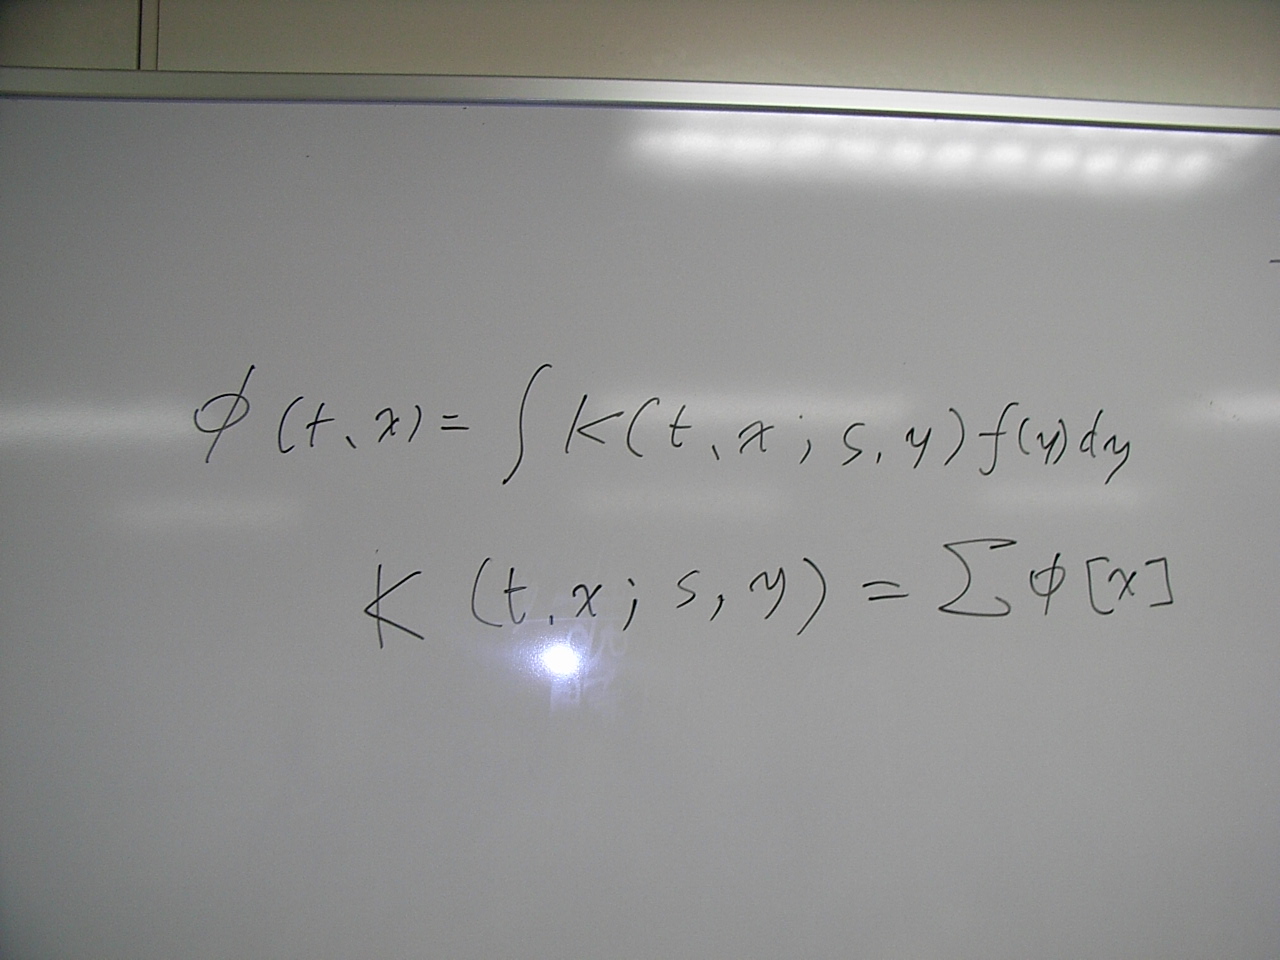 ϕ(t, x) = ∫ K(t, x; s, y) f(y) dy
K(t, x; s, y) = Σ ϕ[x]